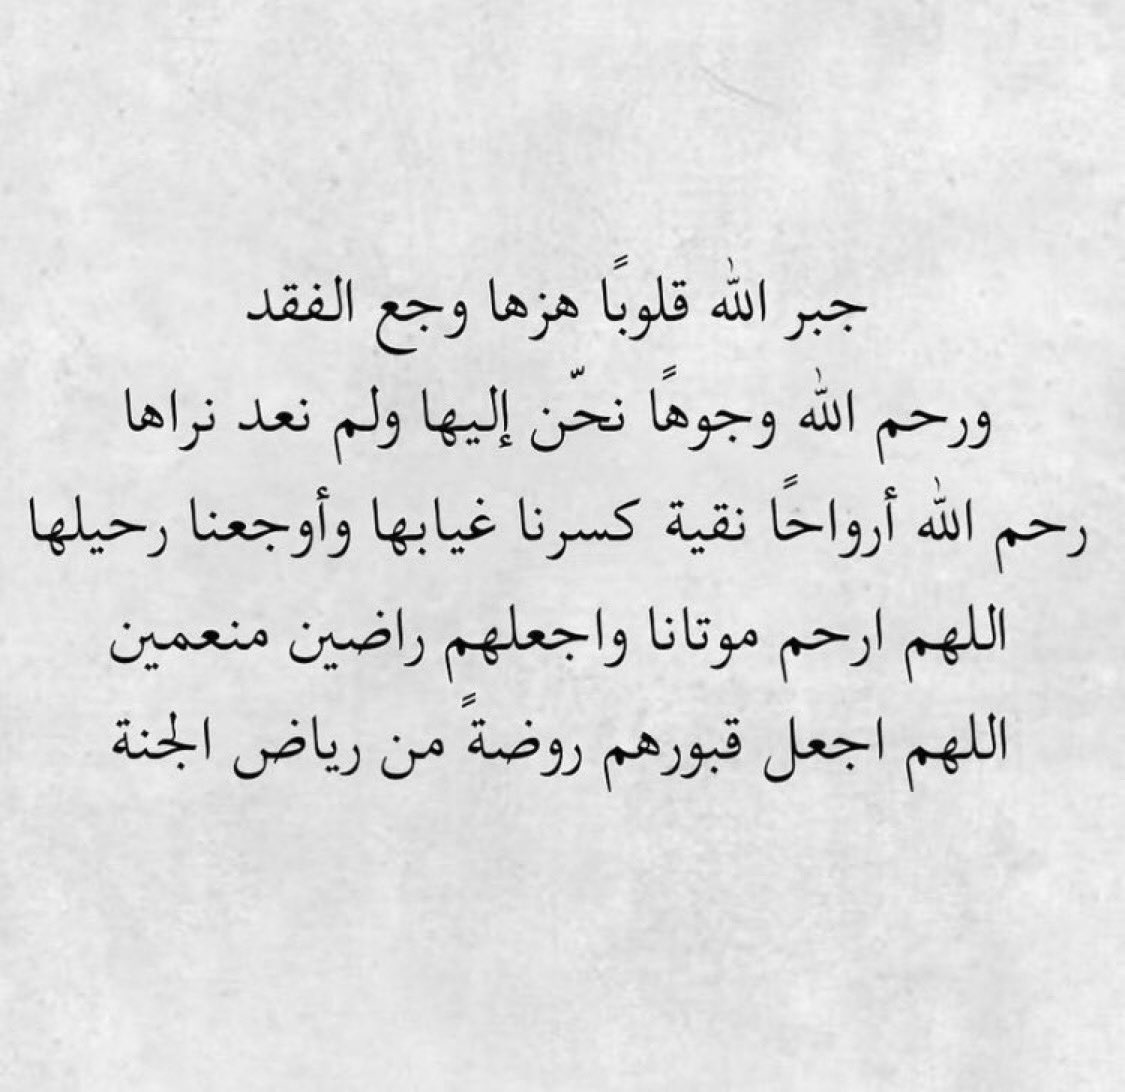 جبر الله قلوباً هزها وجع الفقد
ورحم الله وجوهاً نحّن إليها ولم نعد نراها
رحم الله أرواحاً نقية كسرنا غيابها وأوجعنا رحيلها
اللهم ارحم موتانا واجعلهم راضين منعمين
اللهم اجعل قبورهم روضةً من رياض الجنة